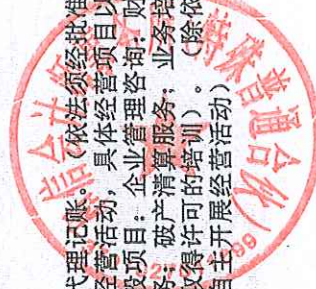 代理记账。（依法须经批准
经营活动，具体经营项目以
般项目：企业管理咨询；财
务；破产清算服务；业务培
取得许可的培训）。（除依
自主开展经营活动）
信会计师事务所（特殊普通合伙）